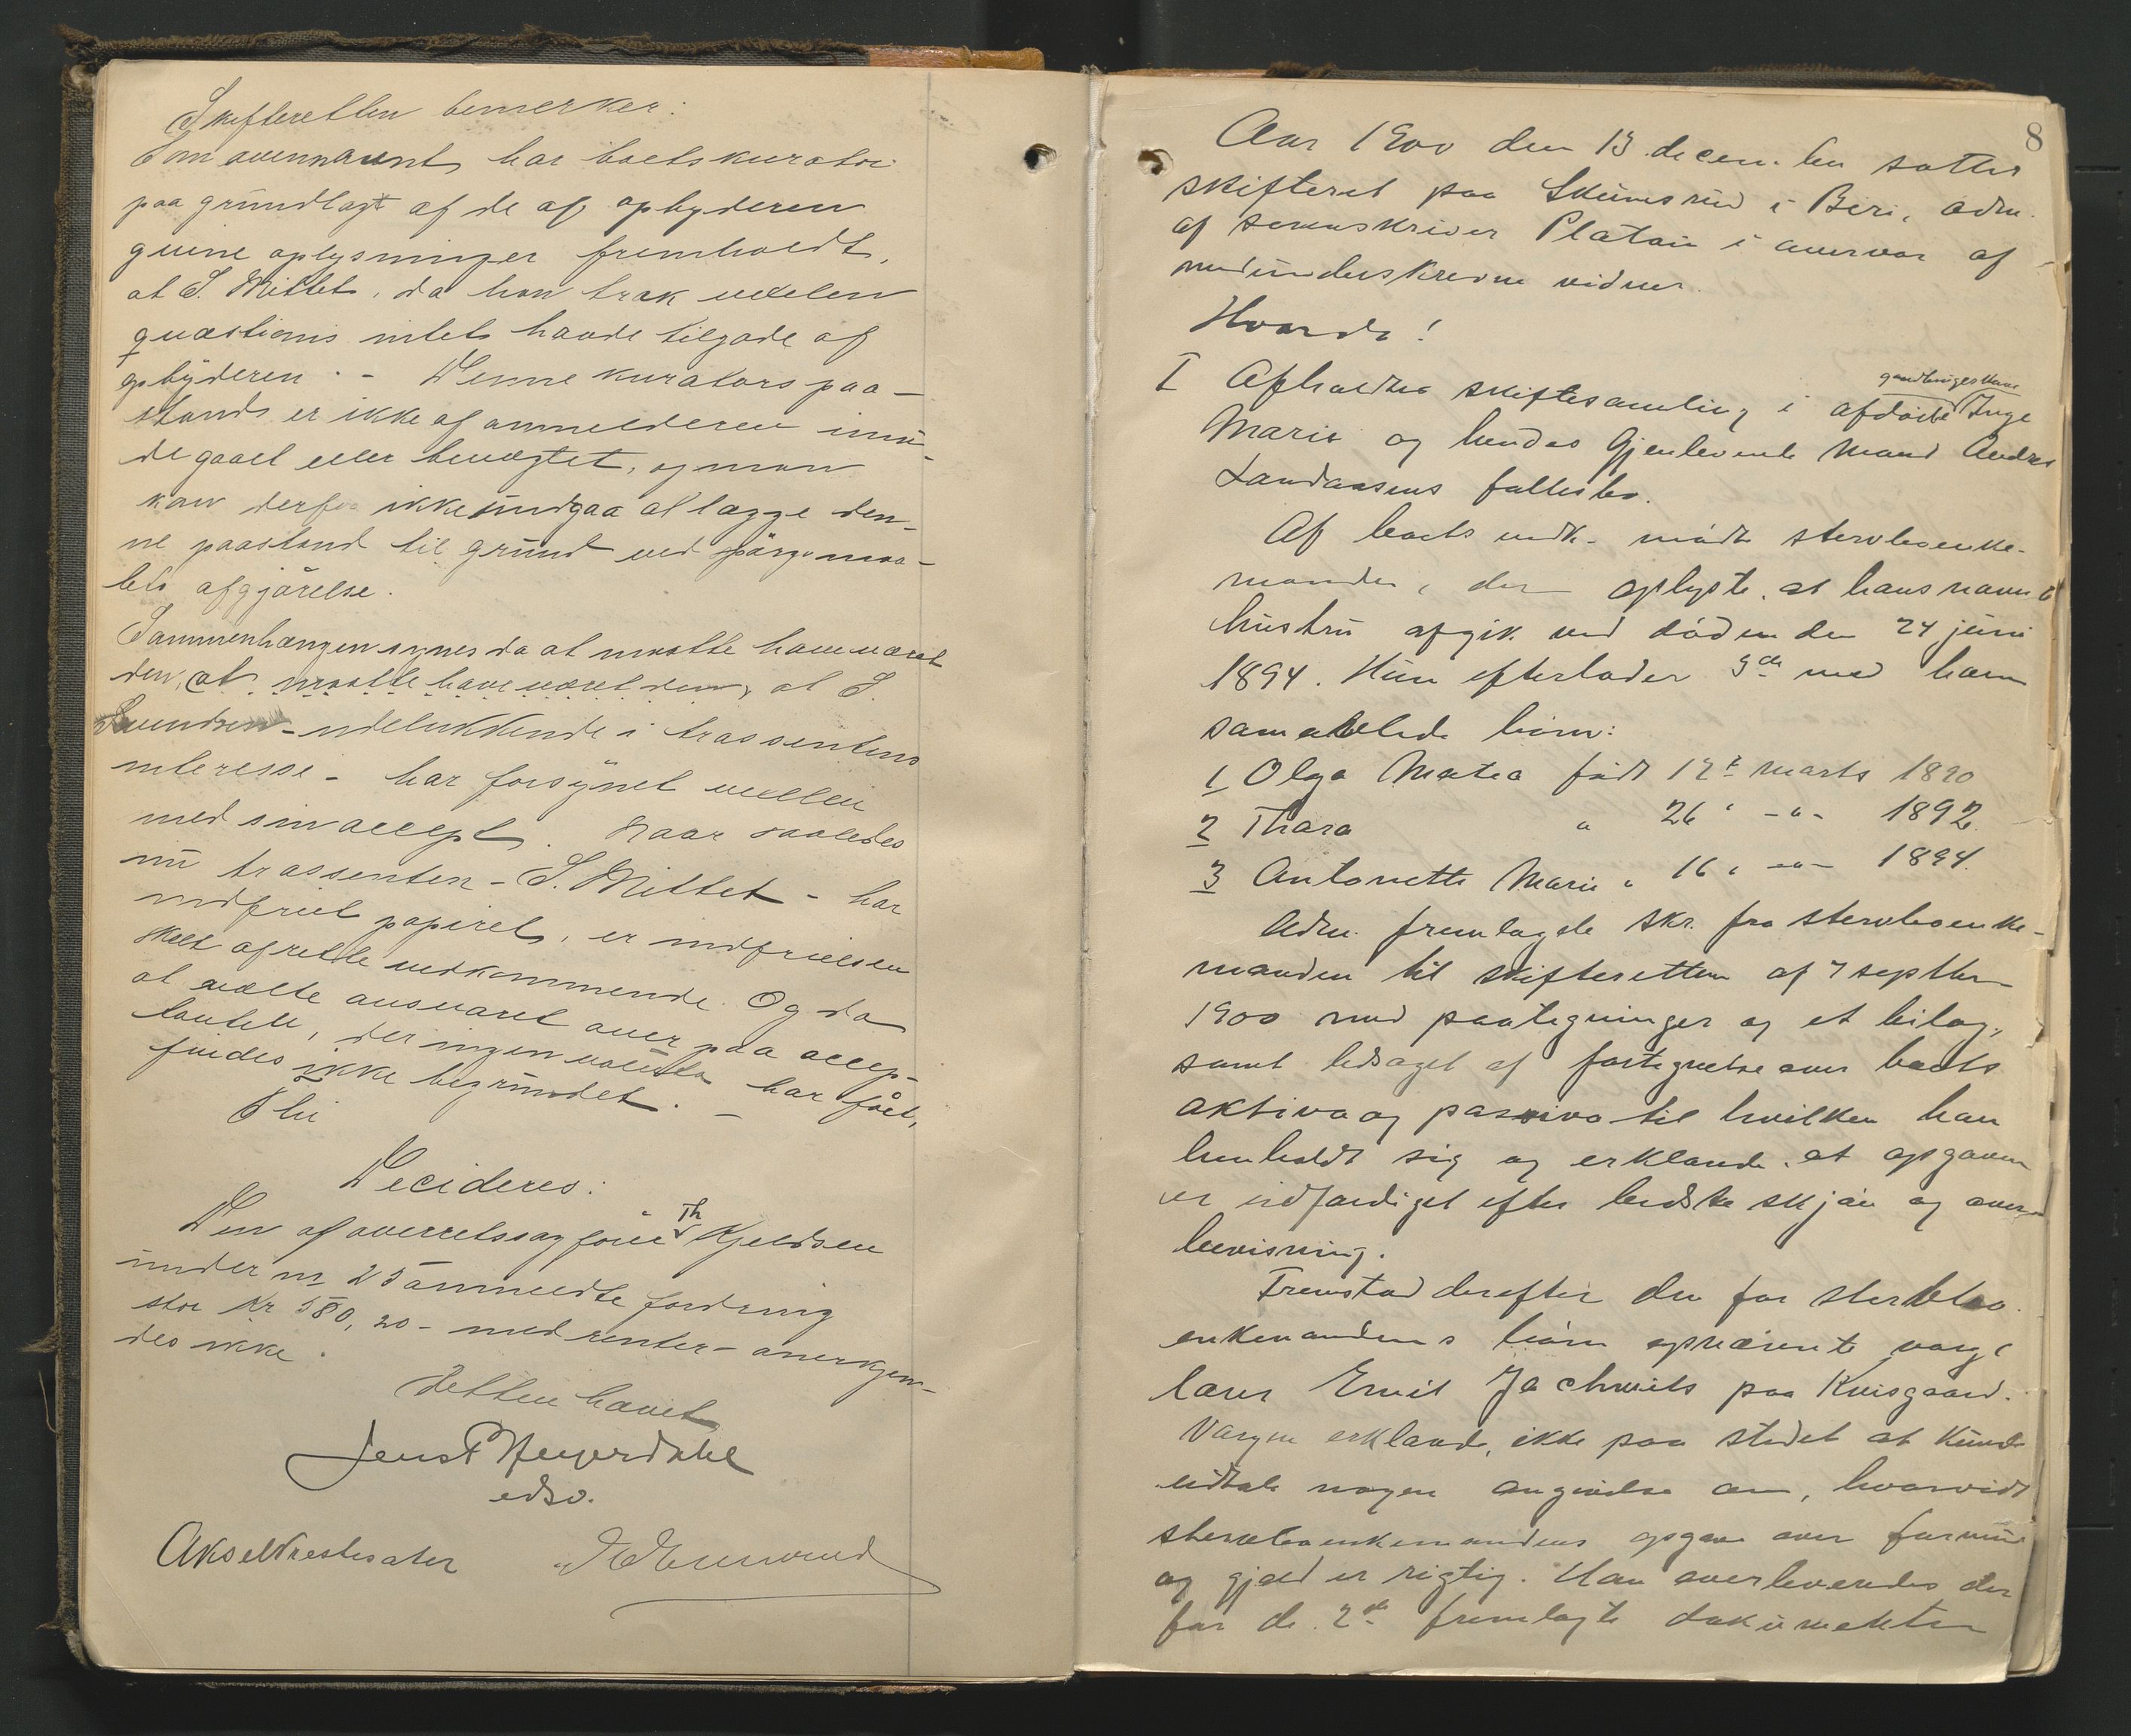 Skifteretten bemerker:
Som ovennævnt har boets kurator
paa grundlag af de af opbyderen
givne oplysninger fremholdt,
at S. Mittet, da han trak vexlen
quæstionis intet havde tilgode af
opbyderen. - Denne kurators paa-
stand er ikke af anmelderen imø-
degaaet eller benægtet, og man
kan derfor ikke undgaa at lægge den-
ne paastand til grund ved spörgsmaa-
lets afgjörelse.
Sammenhængen synes da at maatte have været
den, at maatte have været den, at S.
Svendsen - udelukkende i trassentens
interesse - har forsynet vexlen
med sin accept. Naar saaledes
nu trassenten - S. Mittet - har
indfriet papiret, er indfrielsen
skeet af rette vedkommende. Og da
at vælte ansvaret over paa accep-
tanten, der ingen valuta har fået,
findes ikke begrundet. -
Thi
Decideres:
Den af overretssagförer Th Kjeldsen
under nr 25 anmeldte fordring
stor Kr 580,20 - med renter - anerkjen-
des ikke.
Retten hævet
Jens P Heyerdahl
edsv.
Aksel
8
Aar 1900 den 13 december sattes
skifteret paa Skumsrud i Biri, adm.
af sorenskriver Platou i overvær af
medunderskrevne vidner.
Hvorda!
I Afholdtes skiftesamling i afdøde gaardbrugerkone Inge
Marie og hendes gjenlevende mand Andres
Landaasens fællesbo.
Af boets vedk. mødte stervboenke-
manden, der oplyste, at hans nævnte
hustru afgik ved døden den 24 juni
1894. Hun efterlader 3de med ham
sam avlede børn:
1 Olga Matea født 12te marts 1890
2 Thara " 26 " -"- 1892
3 Antonette Marie " 16 " -"- 1894.
Adm. fremlagde skr. fra stervboenke-
manden til skifteretten af 7 septbr
1900 med paategninger og et bilag,
samt ledsaget af fortegnelse over boets
aktiva og passiva til hvilken han
henholdt sig og erklærede, at opgaven
er udfærdiget efter bedste skjøn og over-
bevisning.
Fremstod derefter den for stervbo-
enkemandens børn opnævnte værge
lærer Emil Jachwits paa Kvisgaard.
Værgen erklærede, ikke paa stedet at kunde
udtale nogen angivelse om, hvorvidt
stervboenkemandens opgave over formue
og gjæld er rigtig. Han overleveredes der
for de 2de fremlagte dokumenter